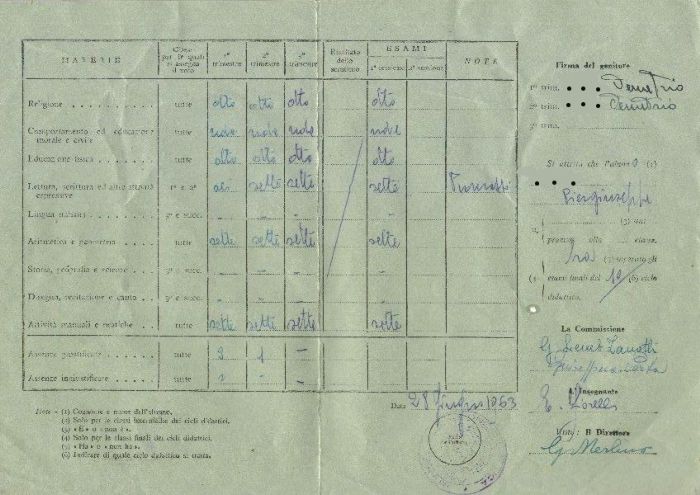 MATERIE
Classi per le quali si assegna il voto
1° trimestre
2° trimestre
3° trimestre
Risultato dello scrutinio
ESAMI
1ª sessione
2ª sessione
NOTE
Religione tutte otto otto otto otto
Comportamento ed educazione morale e civile tutte nove nove nove nove
Educazione fisica tutte otto otto otto otto
Lettura, scrittura ed altre attività espressive 1ª e 2ª sei sette sette sette
Lingua italiana 3ª e succ. - - - -
Aritmetica e geometria tutte sette sette sette sette
Storia, geografia e scienze 3ª e succ. - - - -
Disegno, recitazione e canto 3ª e succ. - - - -
Attività manuali e pratiche tutte sette sette sette sette
Assenze giustificate tutte 2 1 -
Assenze ingiustificate tutte - -
Data 28 giugno 1963
Note - (1) Cognome e nome dell'alunno.
(2) Solo per le classi intermedie dei cicli didattici.
(3) «È» o «non è».
(4) Solo per le classi finali dei cicli didattici.
(5) «Ha» o «non ha».
(6) Indicare di quale ciclo didattico si tratta.
Firma del genitore
1° trim. Demetrio
2° trim. Demetrio
3° trim.
Si attesta che l'alunno (1)
Piergiuseppe
(3) stat
promosso alla classe
ha (5) superato gli
esami finali del 1° (6) ciclo
didattico.
La Commissione
L'Insegnante
E. Zorella
Visto: Il Direttore
G. Merlino